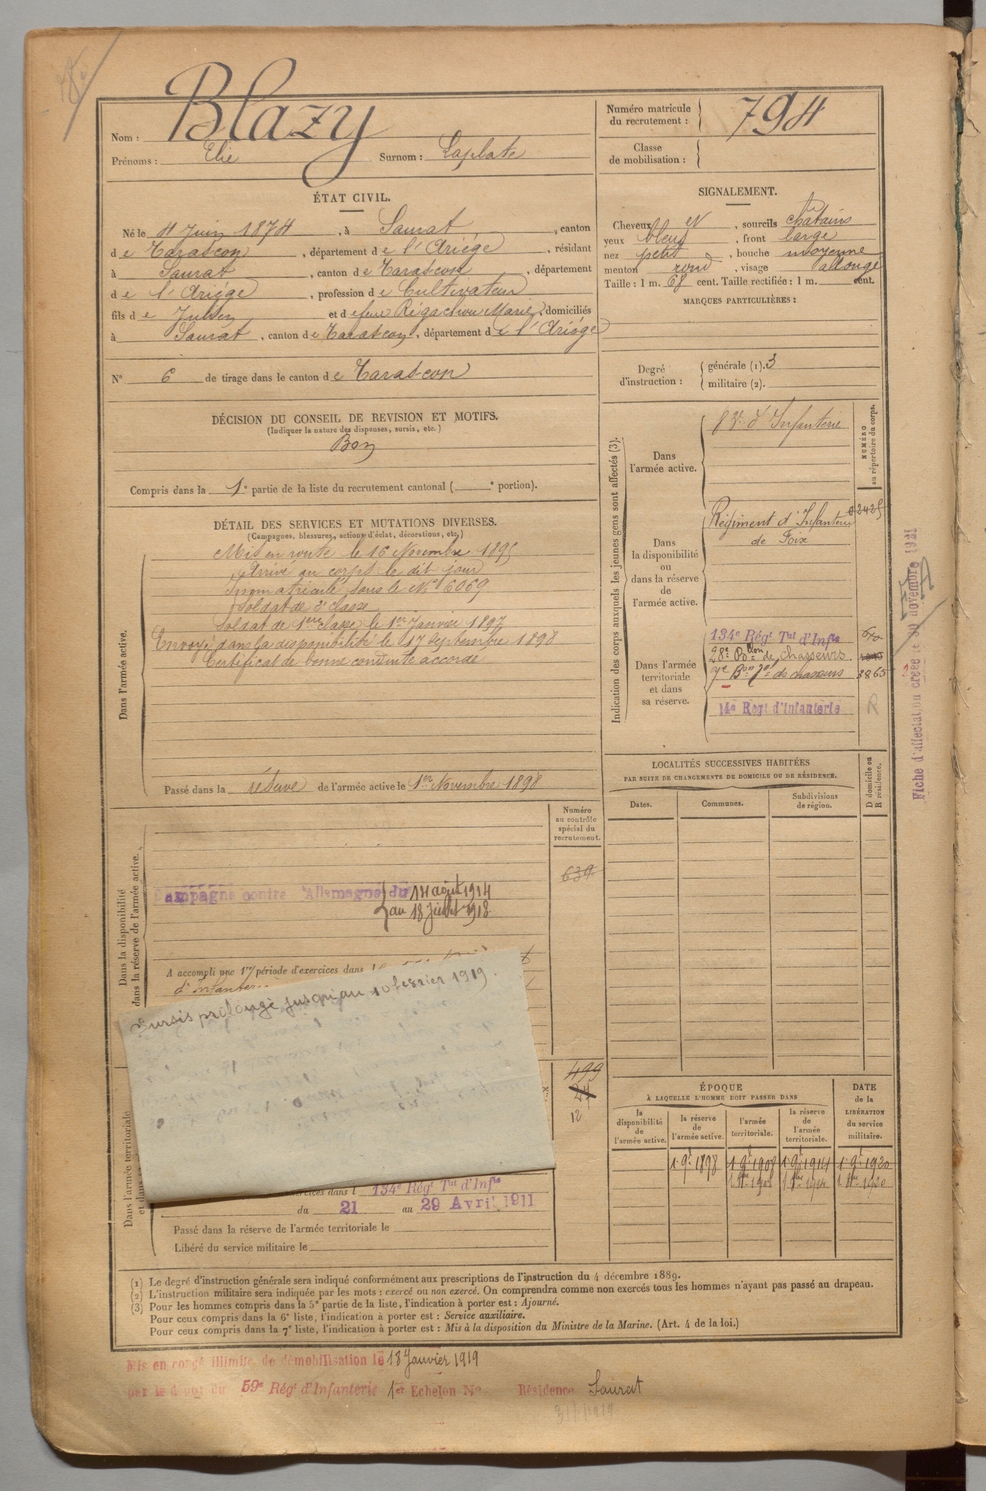 Nom : Blazy
Prénoms : Elie Surnom : Laplate
Numéro matricule du recrutement : 794
Classe de mobilisation :
ÉTAT CIVIL.
Né le 4 Juin 1874, à Saurat, canton
de Tarascon, département de l'Ariége, résidant
à Saurat, canton de Tarascon, département
de l'Ariége, profession de Cultivateur
fils de Julien et de feue Régachou Marie, domiciliés
à Saurat, canton de Tarascon, département de l'Ariége
N° 6 de tirage dans le canton de Tarascon
DÉCISION DU CONSEIL DE REVISION ET MOTIFS.
(Indiquer la nature des dispenses, sursis, etc.)
Bon
Compris dans la 1e partie de la liste du recrutement cantonal ( e portion).
DÉTAIL DES SERVICES ET MUTATIONS DIVERSES.
(Campagnes, blessures, actions d'éclat, décorations, etc.)
Dans l'armée active.
Mis en route le 16 Novembre 1895
Arrivé au corps le dit jour
Immatriculé sous le N° 6069
Soldat de 2e classe
Soldat de 1ere classe le 1er Janvier 1897
Envoyé dans la disponibilité le 17 Septembre 1898
Certificat de bonne conduite accordé
Passé dans la réserve de l'armée active le 1er Novembre 1898
Numéro au contrôle spécial du recrutement.
639
Dans la disponibilité
dans la réserve de l'armée active.
Campagne contre l'Allemagne du 14 août 1914
au 18 Juillet 1918
A accompli une 1re période d'exercices dans
d'Infanterie
Sursis prolongé jusqu'au 10 février 1919.
499
27
12
Dans l'armée territoriale
et dans
exercices dans l 134e Régt Tal d'Infie
du 21 au 29 Avril 1911
Passé dans la réserve de l'armée territoriale le
Libéré du service militaire le
SIGNALEMENT.
Cheveux et, sourcils chatains
yeux bleus, front large
nez petit, bouche moyenne
menton rond, visage allongé
Taille : 1 m. 68 cent. Taille rectifiée : 1 m. cent.
MARQUES PARTICULIÈRES :
Degré d'instruction : générale (1). 3
militaire (2).
Indication des corps auxquels les jeunes gens sont affectés (3).
NUMÉRO au répertoire du corps.
Dans l'armée active.
d'Infanterie
Dans la disponibilité ou dans la réserve de l'armée active.
Régiment d'Infanterie
de Foix
Dans l'armée territoriale et dans sa réserve.
134e Régt Tal d'Infie
28e Btlon de chasseurs
7e Bon Tal de chasseurs 3865
14e Regt d'Infanterie
R
Fiche d'affectation créée le novembre 1921
LOCALITÉS SUCCESSIVES HABITÉES
PAR SUITE DE CHANGEMENTS DE DOMICILE OU DE RÉSIDENCE.
D domicile ou R résidence.
Dates. Communes. Subdivisions de région.
ÉPOQUE
À LAQUELLE L'HOMME DOIT PASSER DANS
DATE de la LIBÉRATION du service militaire.
la disponibilité de l'armée active. la réserve de l'armée active. l'armée territoriale. la réserve de l'armée territoriale.
1 9e 1898 1 9e 1908 1 9e 1914 1 9e 1920
1 Nbre 1908 1 Nbre 1914 1 Nbre 1920
(1) Le degré d'instruction générale sera indiqué conformément aux prescriptions de l'instruction du 4 décembre 1889.
(2) L'instruction militaire sera indiquée par les mots : exercé ou non exercé. On comprendra comme non exercés tous les hommes n'ayant pas passé au drapeau.
(3) Pour les hommes compris dans la 5e partie de la liste, l'indication à porter est : Ajourné.
Pour ceux compris dans la 6e liste, l'indication à porter est : Service auxiliaire.
Pour ceux compris dans la 7e liste, l'indication à porter est : Mis à la disposition du Ministre de la Marine. (Art. 4 de la loi.)
Mis en congé illimité de démobilisation le 18 Janvier 1919
par le dépôt du 59e Régt d'Infanterie 1er Echelon No Résidence Saurat